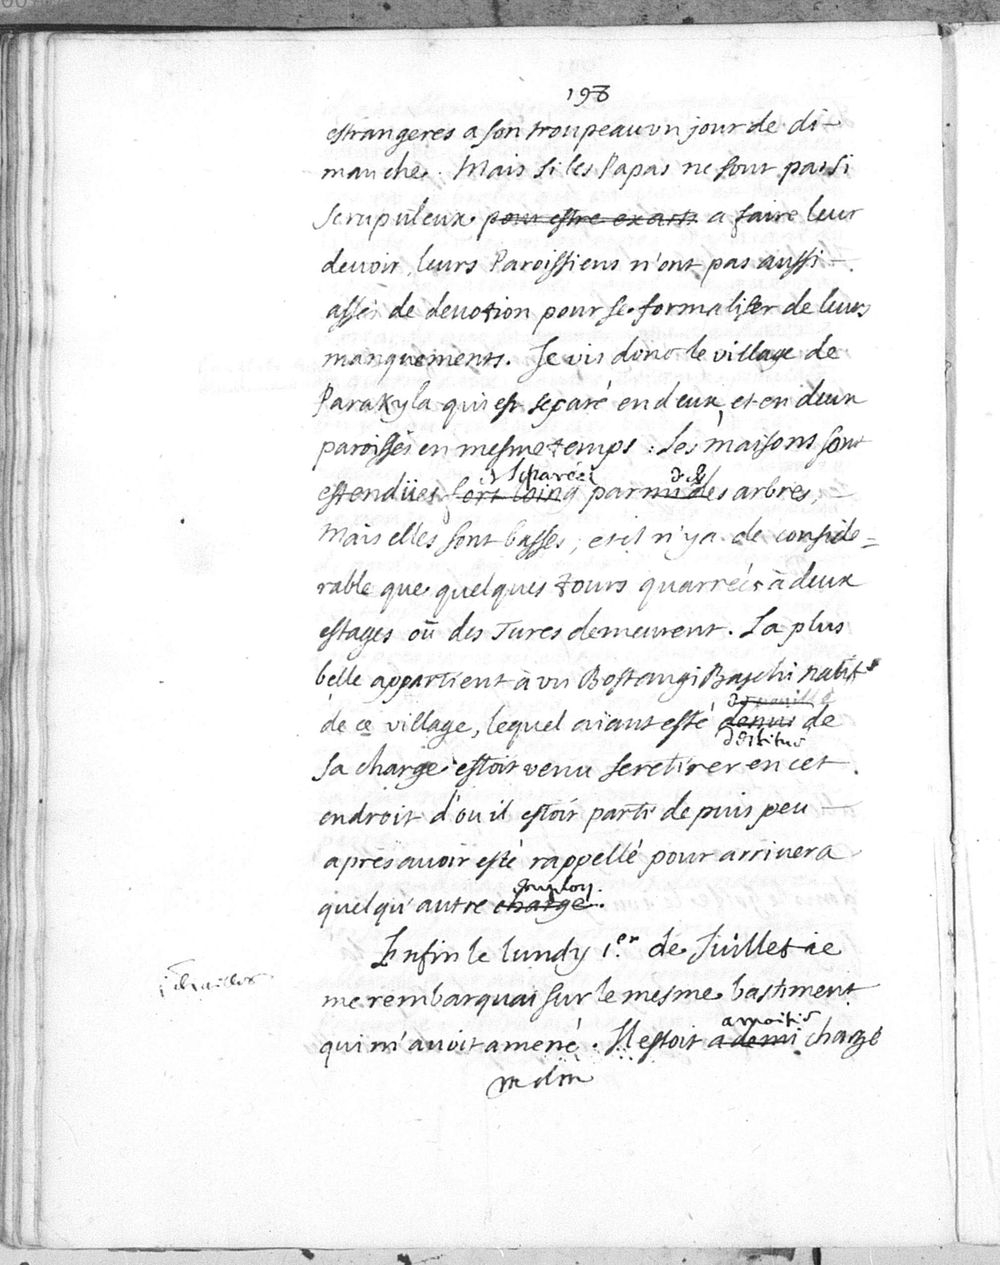 198
estrangeres a son troupeau un jour de di-
manche. Mais si les Papas ne sont pas si
scrupuleux pour estre exacts a faire leur
devoir, leurs Paroissiens n'ont pas aussi
assés de devotion pour se formaliser de leurs
manquements. Je vis donc le village de
Parakyla qui est separé en deux, et en deux
paroisses en mesme temps. Les maisons sont
et separées des
estendües fort loing parmi des arbres,
Mais elles sont basses, et il n'y a de conside-
rable que quelques tours quarrées à deux
estages où des Turcs demeurent. La plus
belle appartient à un Bostangi Baschi natif
de ce village, lequel aiant esté demis de
destitué
sa charge estoit venu se retirer en cet
endroit d'ou il estoit parti depuis peu
apres avoir esté rappellé pour arriver a
employ.
quelqu'autre charge.
Enfin le lundy 1.er de Juillet ie
1. Juillet
me rembarquai sur le mesme bastiment
a moitié
qui m'avoit amené. Il estoit a demi chargé